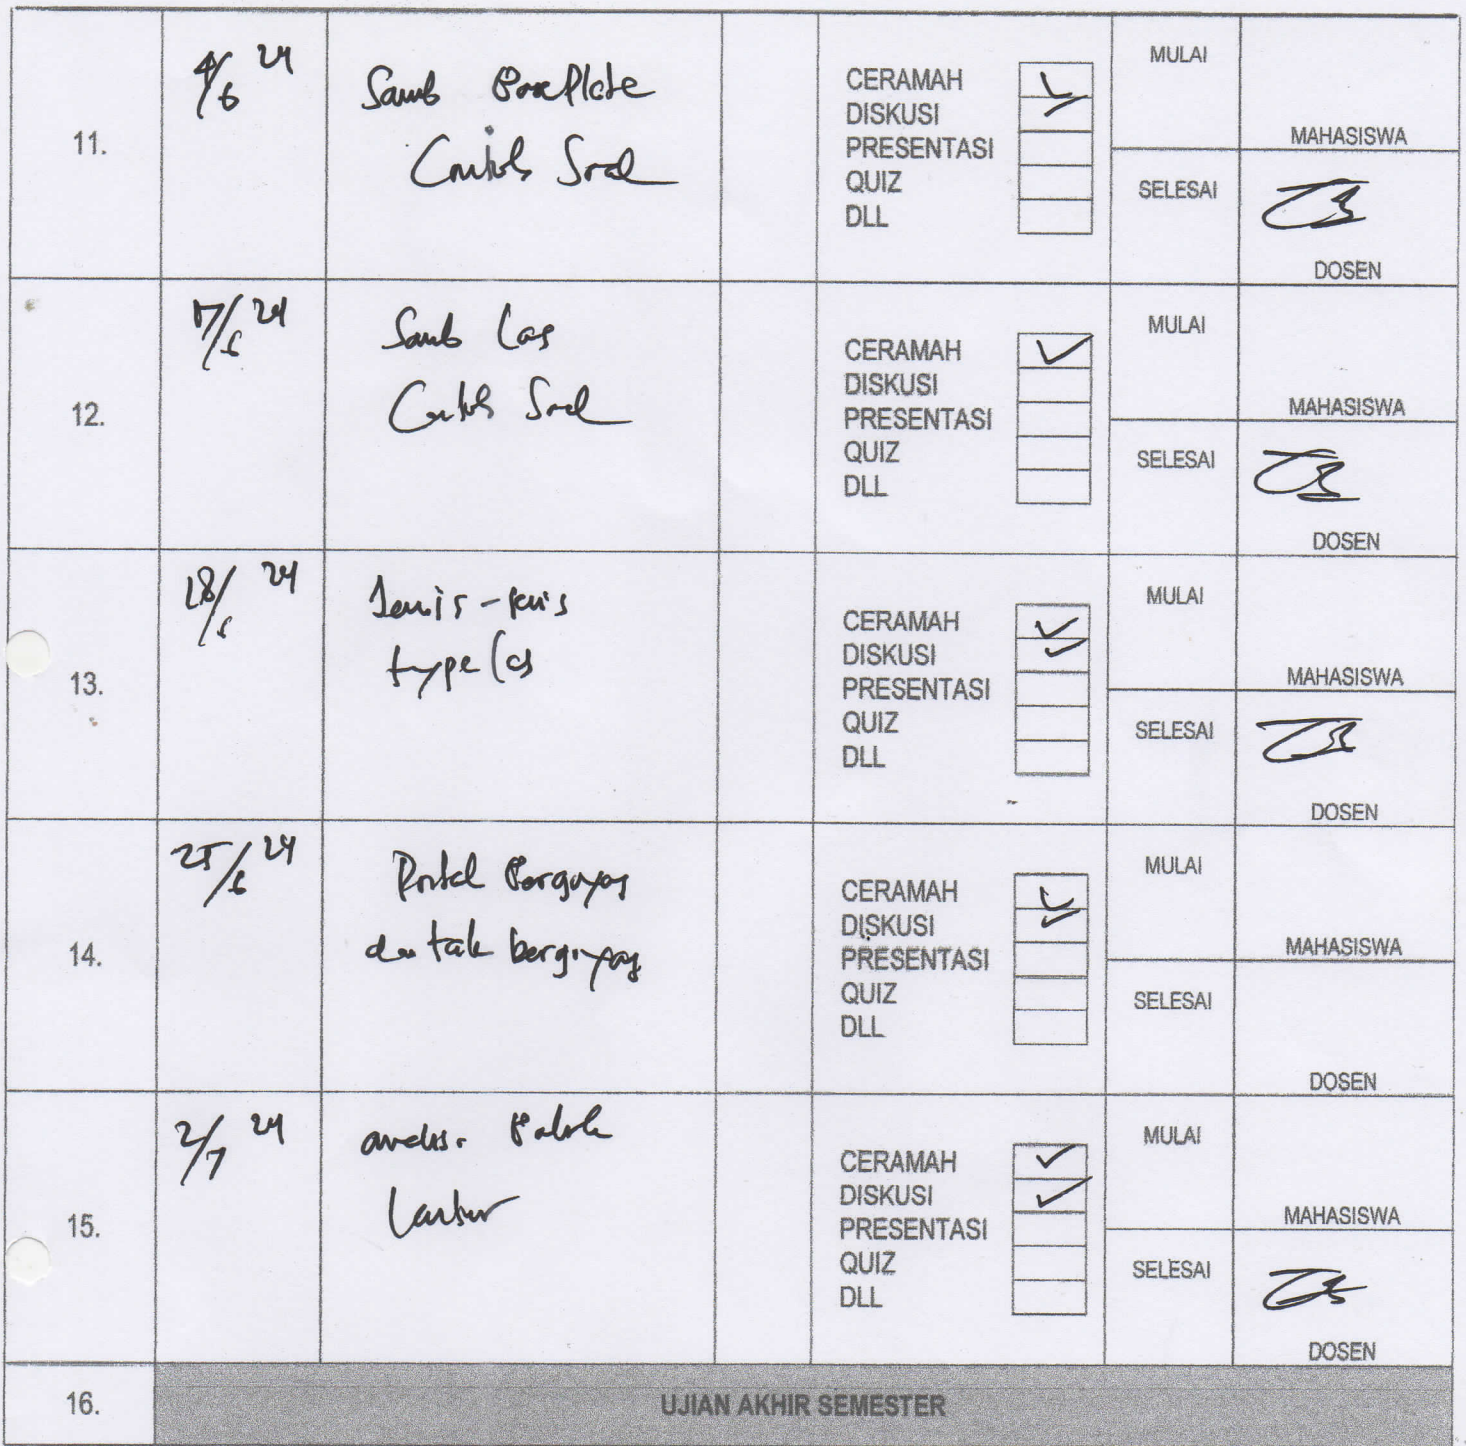 11.
4/6 24
Samb Baseplate
Contoh Soal
CERAMAH
DISKUSI
PRESENTASI
QUIZ
DLL
MULAI
MAHASISWA
SELESAI
DOSEN
12.
24
Samb Las
Contoh Soal
CERAMAH
DISKUSI
PRESENTASI
QUIZ
DLL
MULAI
MAHASISWA
SELESAI
DOSEN
13.
18/6 24
Jenis-jenis
type las
CERAMAH
DISKUSI
PRESENTASI
QUIZ
DLL
MULAI
MAHASISWA
SELESAI
DOSEN
14.
25/6 24
Portal Bergoyang
dan tak bergoyang
CERAMAH
DISKUSI
PRESENTASI
QUIZ
DLL
MULAI
MAHASISWA
SELESAI
DOSEN
15.
2/7 24
Balok
CERAMAH
DISKUSI
PRESENTASI
QUIZ
DLL
MULAI
MAHASISWA
SELESAI
DOSEN
16.
UJIAN AKHIR SEMESTER